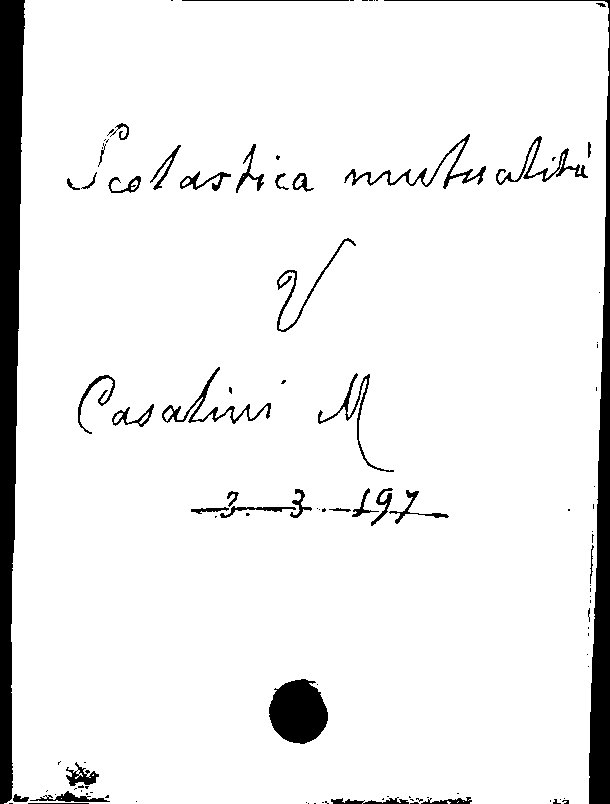 Scolastica mutualità
V
Casalini M
3. 3. 197